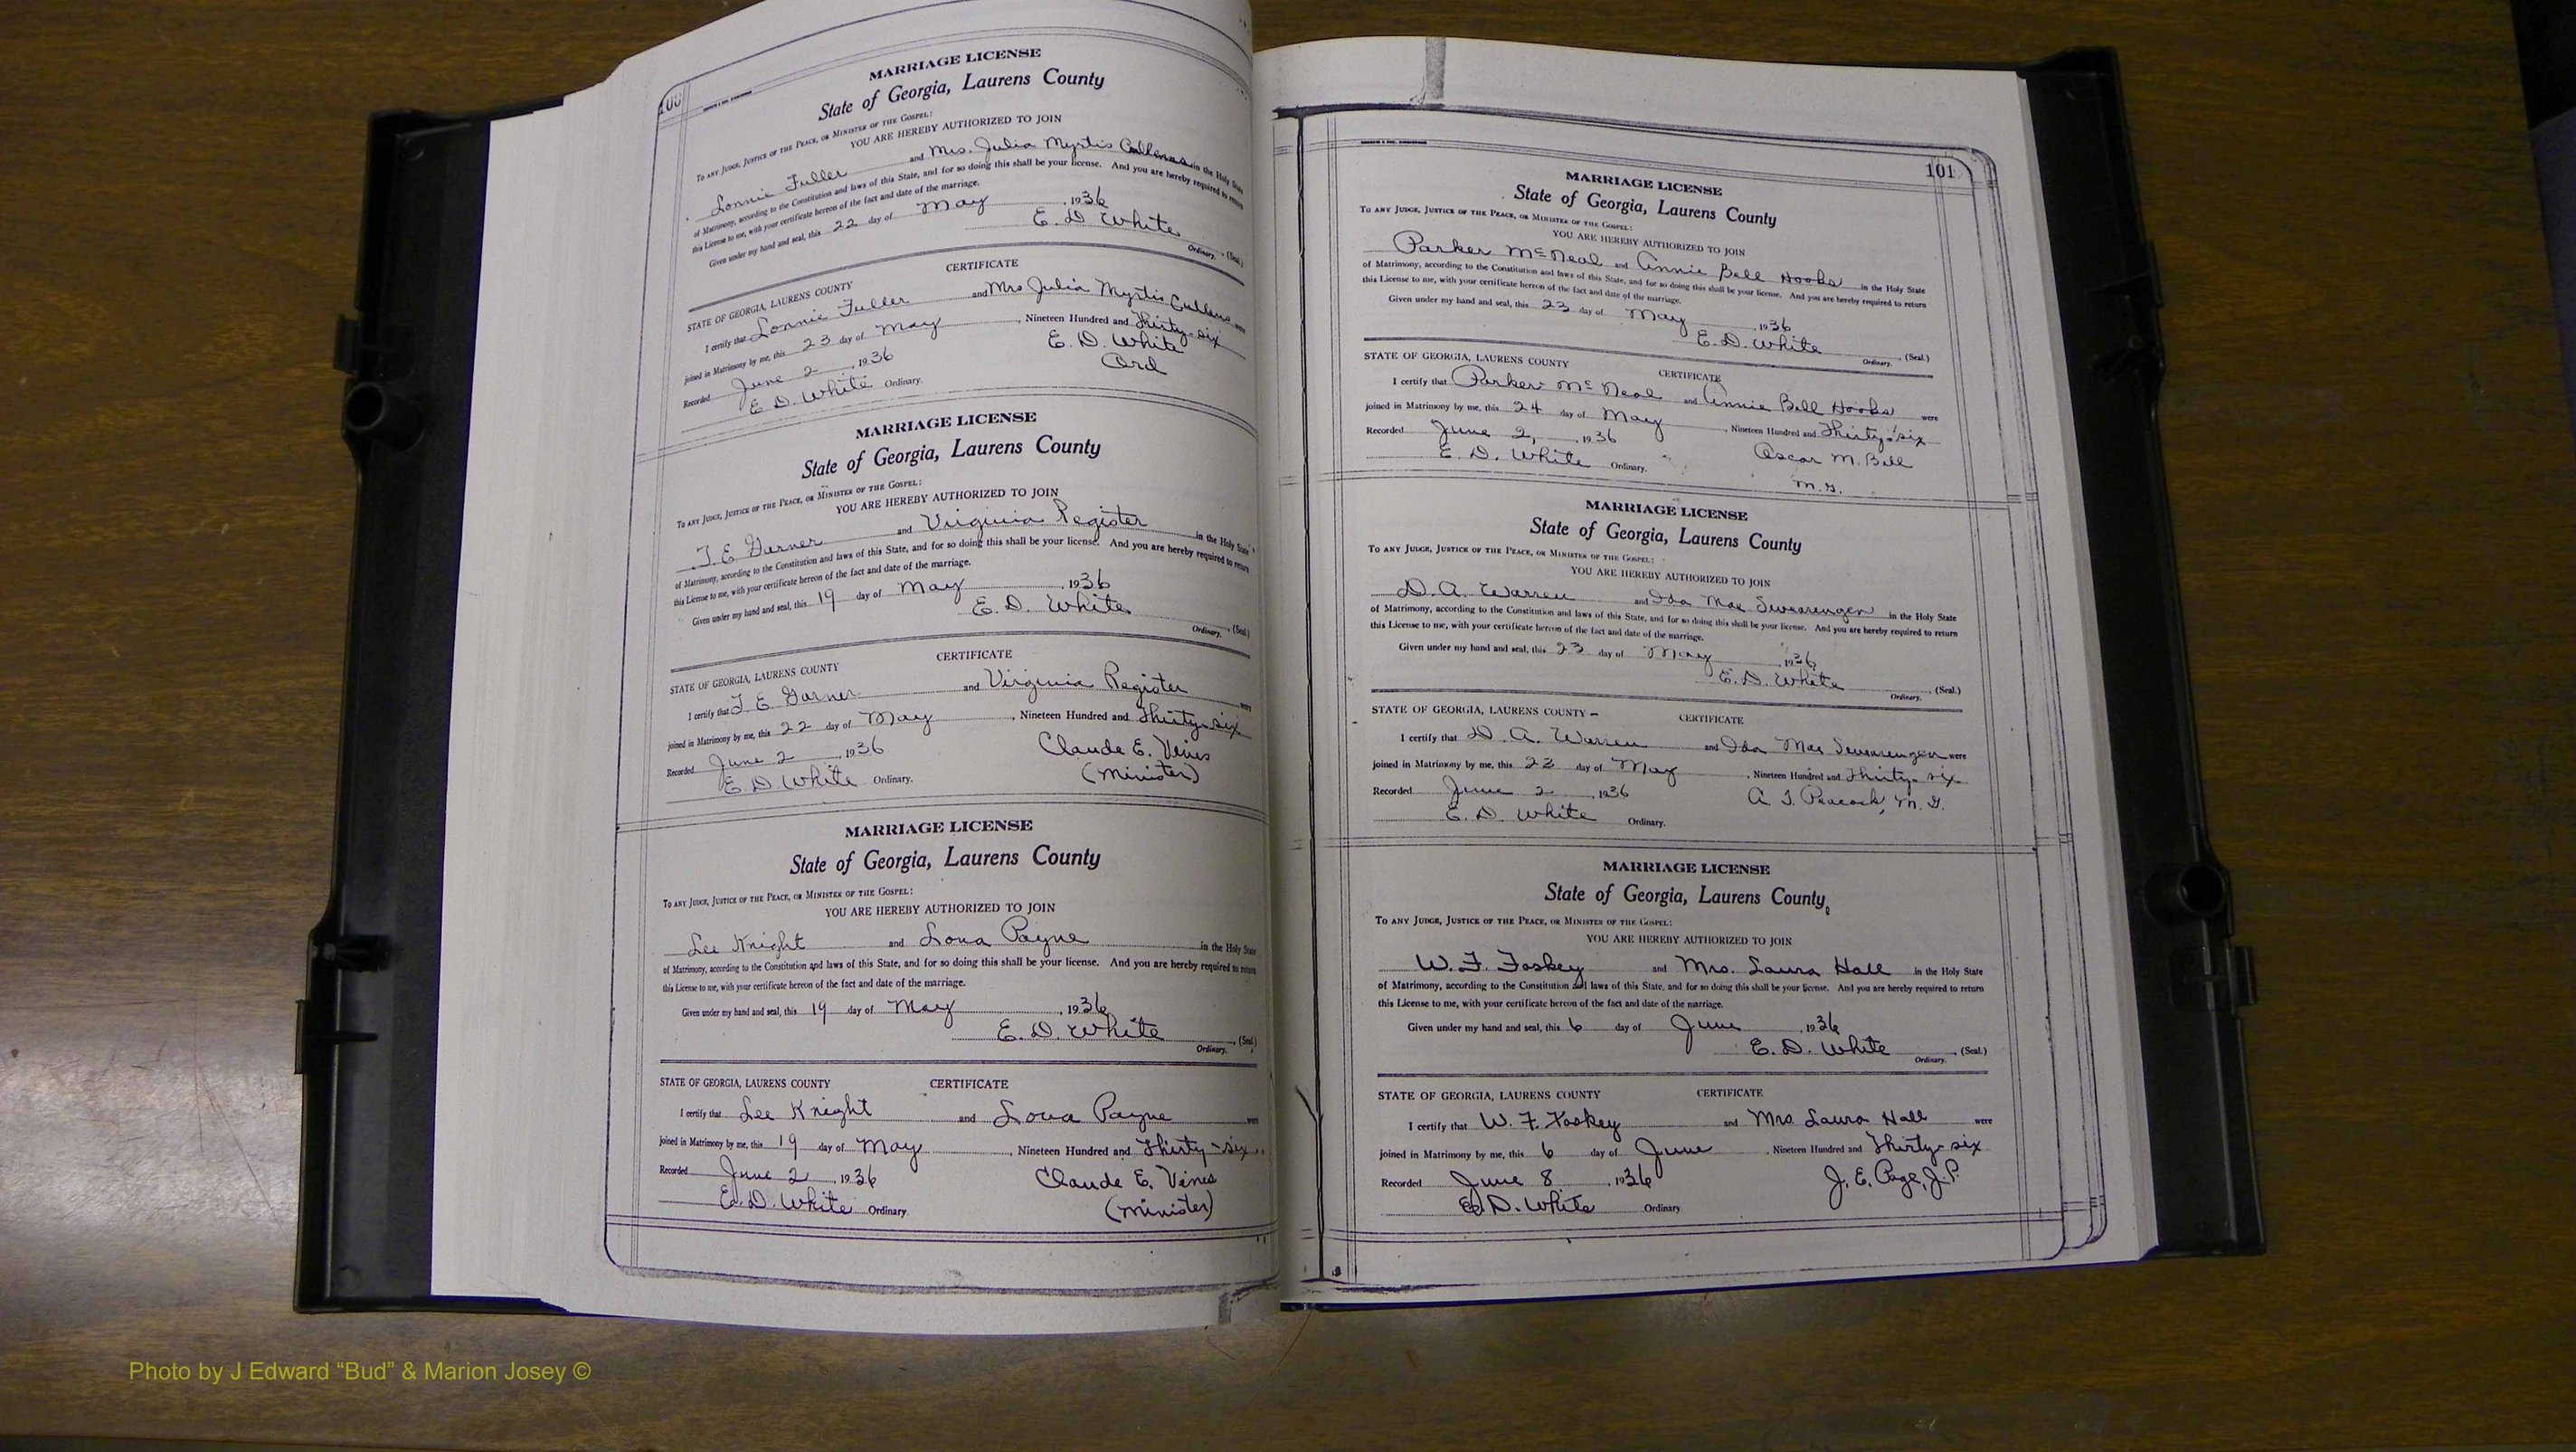 100
MARRIAGE LICENSE
State of Georgia, Laurens County
To any Judge, Justice of the Peace, or Minister of the Gospel:
YOU ARE HEREBY AUTHORIZED TO JOIN
Lonnie Fuller and Mrs. Julia Myrtis Cullens in the Holy State
of Matrimony, according to the Constitution and laws of this State, and for so doing this shall be your license. And you are hereby required to return
this License to me, with your certificate hereon of the fact and date of the marriage.
Given under my hand and seal, this 22 day of May, 1936
E. D. White, (Seal.)
Ordinary.
CERTIFICATE
STATE OF GEORGIA, LAURENS COUNTY
I certify that Lonnie Fuller and Mrs Julia Myrtis Cullens were
joined in Matrimony by me, this 23 day of May, Nineteen Hundred and Thirty-six
Recorded June 2, 1936 E. D. White
E. D. White Ordinary. Ord
MARRIAGE LICENSE
State of Georgia, Laurens County
To any Judge, Justice of the Peace, or Minister of the Gospel:
YOU ARE HEREBY AUTHORIZED TO JOIN
T. E Garner and Virginia Register in the Holy State
of Matrimony, according to the Constitution and laws of this State, and for so doing this shall be your license. And you are hereby required to return
this License to me, with your certificate hereon of the fact and date of the marriage.
Given under my hand and seal, this 19 day of May, 1936
E. D. White, (Seal.)
Ordinary.
CERTIFICATE
STATE OF GEORGIA, LAURENS COUNTY
I certify that T E Garner and Virginia Register were
joined in Matrimony by me, this 22 day of May, Nineteen Hundred and Thirty-six
Recorded June 2, 1936 Claude E. Vines
E. D. White Ordinary. (Minister)
MARRIAGE LICENSE
State of Georgia, Laurens County
To any Judge, Justice of the Peace, or Minister of the Gospel:
YOU ARE HEREBY AUTHORIZED TO JOIN
Lee Knight and Lova Payne in the Holy State
of Matrimony, according to the Constitution and laws of this State, and for so doing this shall be your license. And you are hereby required to return
this License to me, with your certificate hereon of the fact and date of the marriage.
Given under my hand and seal, this 19 day of May, 1936
E. D. White, (Seal.)
Ordinary.
STATE OF GEORGIA, LAURENS COUNTY CERTIFICATE
I certify that Lee Knight and Lova Payne were
joined in Matrimony by me, this 19 day of May, Nineteen Hundred and Thirty-six
Recorded June 2, 1936 Claude E. Vines
E. D. White Ordinary. (Minister)
101
MARRIAGE LICENSE
State of Georgia, Laurens County
To any Judge, Justice of the Peace, or Minister of the Gospel:
YOU ARE HEREBY AUTHORIZED TO JOIN
Parker McNeal and Annie Bell Hooks in the Holy State
of Matrimony, according to the Constitution and laws of this State, and for so doing this shall be your license. And you are hereby required to return
this License to me, with your certificate hereon of the fact and date of the marriage.
Given under my hand and seal, this 23 day of May, 1936
E. D. White, (Seal.)
Ordinary.
STATE OF GEORGIA, LAURENS COUNTY CERTIFICATE
I certify that Parker McNeal and Annie Bell Hooks were
joined in Matrimony by me, this 24 day of May, Nineteen Hundred and Thirty-six
Recorded June 2, 1936 Oscar M. Bell
E. D. White Ordinary. M. G.
MARRIAGE LICENSE
State of Georgia, Laurens County
To any Judge, Justice of the Peace, or Minister of the Gospel:
YOU ARE HEREBY AUTHORIZED TO JOIN
D. A. Warren and Ida Mae Swearengen in the Holy State
of Matrimony, according to the Constitution and laws of this State, and for so doing this shall be your license. And you are hereby required to return
this License to me, with your certificate hereon of the fact and date of the marriage.
Given under my hand and seal, this 23 day of May, 1936
E. D. White, (Seal.)
Ordinary.
STATE OF GEORGIA, LAURENS COUNTY CERTIFICATE
I certify that D. A. Warren and Ida Mae Swearengen were
joined in Matrimony by me, this 23 day of May, Nineteen Hundred and Thirty-six
Recorded June 2, 1936 A. T. Peacock, M. G.
E. D. White Ordinary.
MARRIAGE LICENSE
State of Georgia, Laurens County
To any Judge, Justice of the Peace, or Minister of the Gospel:
YOU ARE HEREBY AUTHORIZED TO JOIN
W. F. Foskey and Mrs. Laura Hall in the Holy State
of Matrimony, according to the Constitution and laws of this State, and for so doing this shall be your license. And you are hereby required to return
this License to me, with your certificate hereon of the fact and date of the marriage.
Given under my hand and seal, this 6 day of June, 1936
E. D. White, (Seal.)
Ordinary.
STATE OF GEORGIA, LAURENS COUNTY CERTIFICATE
I certify that W. F. Foskey and Mrs Laura Hall were
joined in Matrimony by me, this 6 day of June, Nineteen Hundred and Thirty-six
Recorded June 8, 1936 J. E. Page, J. P.
E. D. White Ordinary
Photo by J Edward “Bud” & Marion Josey ©